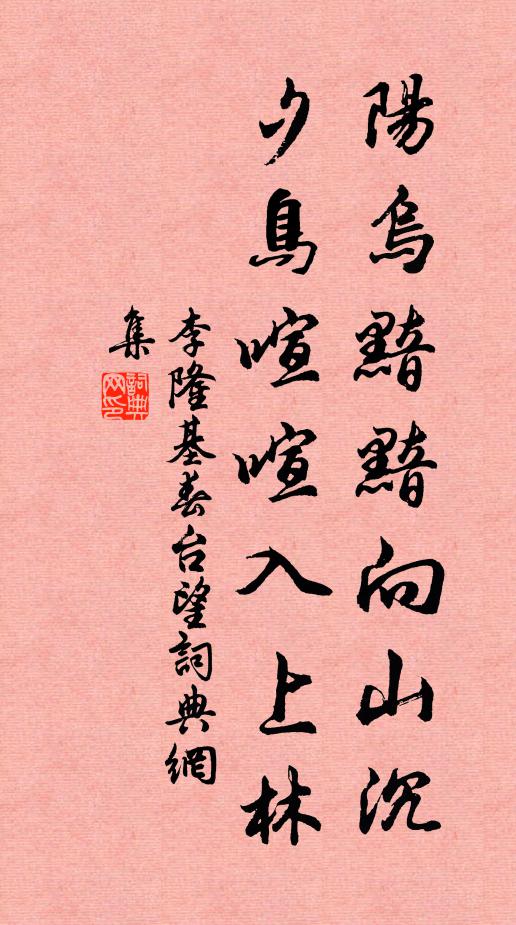 陽烏黯黯向山沉
夕鳥喧喧入上林
李隆基春台望詞典網
集
詞典网印